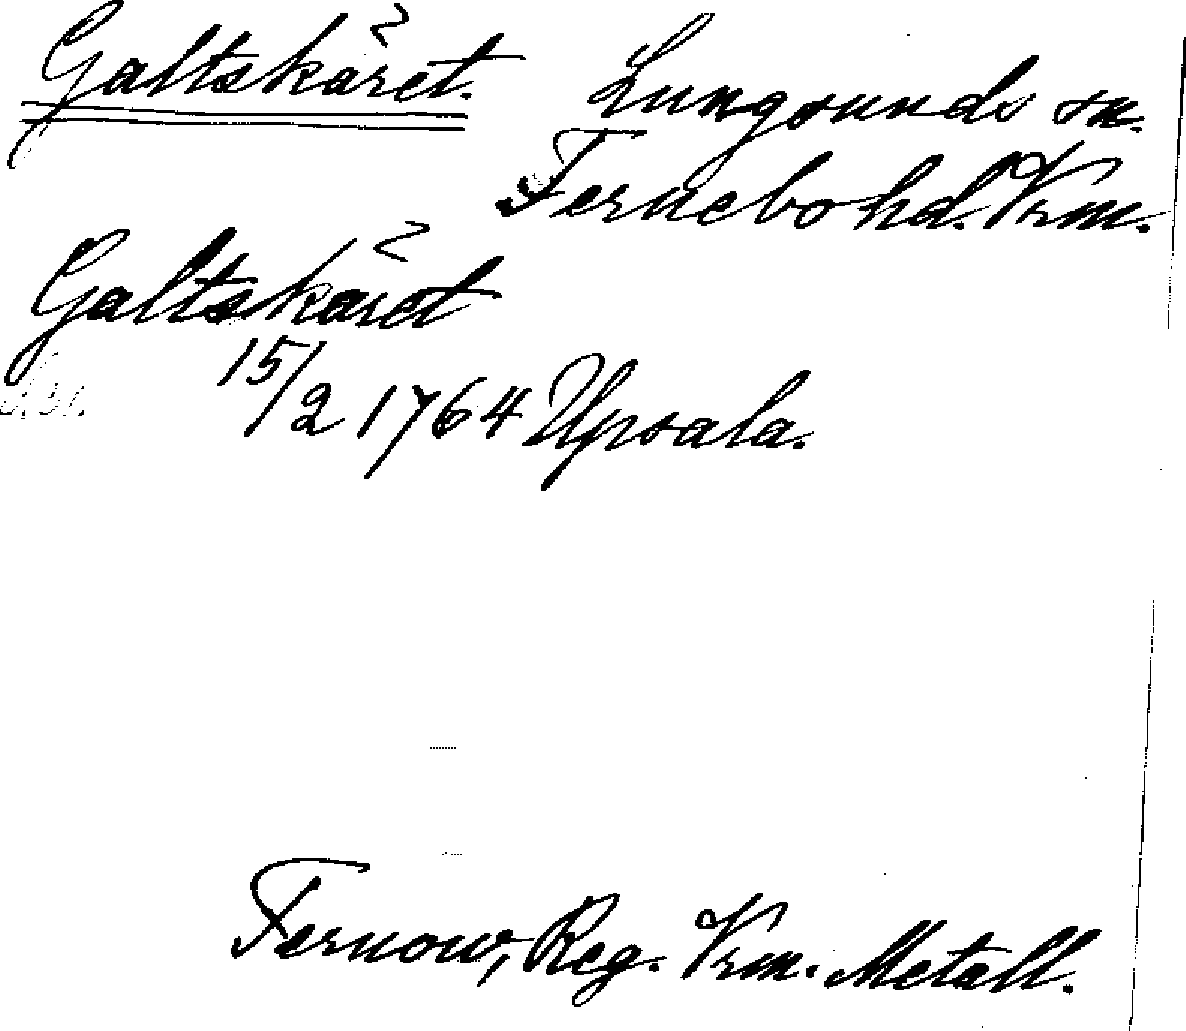 Galtskäret.
Lungsunds sn.
Fernebo hd. Vrm.
Galtskäret
15/2 1764 Upsala.
Fernow, Reg. Vrm. Metall.